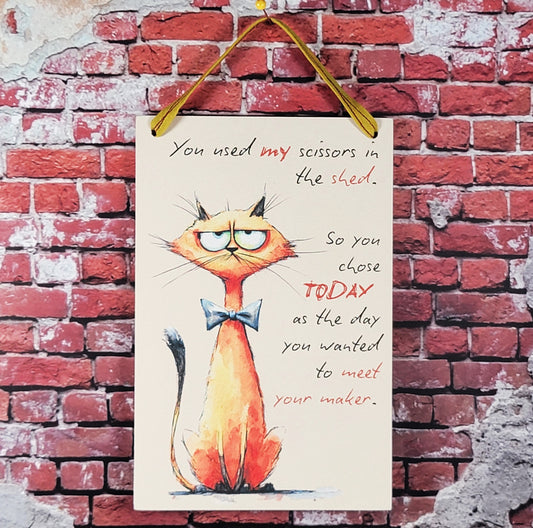 You used my scissors in
the shed.
So you
chose
TODAY
as the day
you wanted
to meet
your maker.